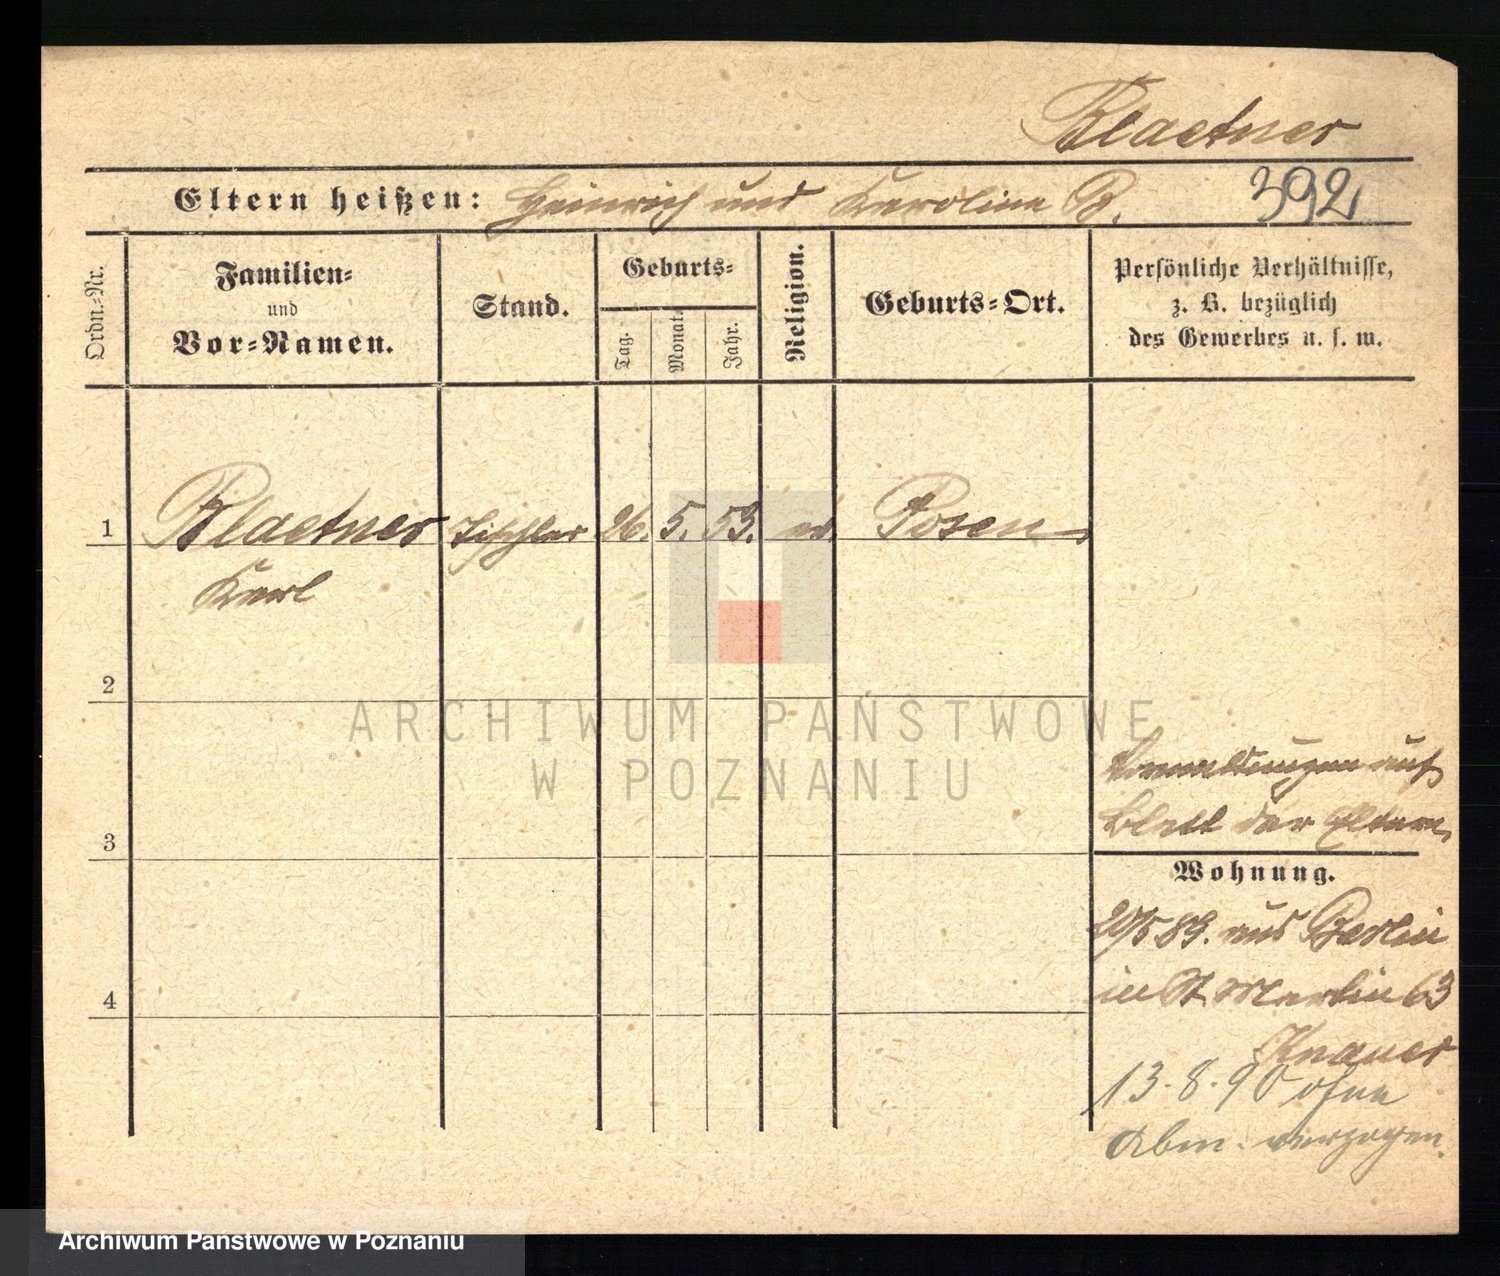 Blaetner
Eltern heißen: Heinrich und Karoline B. 392
Ordn.-Nr.
Familien-
und
Vor-Namen.
Stand.
Geburts-
Tag.
Monat.
Jahr.
Religion.
Geburts-Ort.
Persönliche Verhältnisse,
z. B. bezüglich
des Gewerbes u. s. w.
1 Blaetner Tischler 26. 5. 53. ev. Posen
Karl
2
ARCHIWUM PAŃSTWOWE
W POZNANIU
auf
Blatt der Eltern
3
Wohnung.
20/5 89. aus Berlin
in St Martin 63
4
Knauer
13.8.90 ohne
Abm. verzogen.
Archiwum Państwowe w Poznaniu